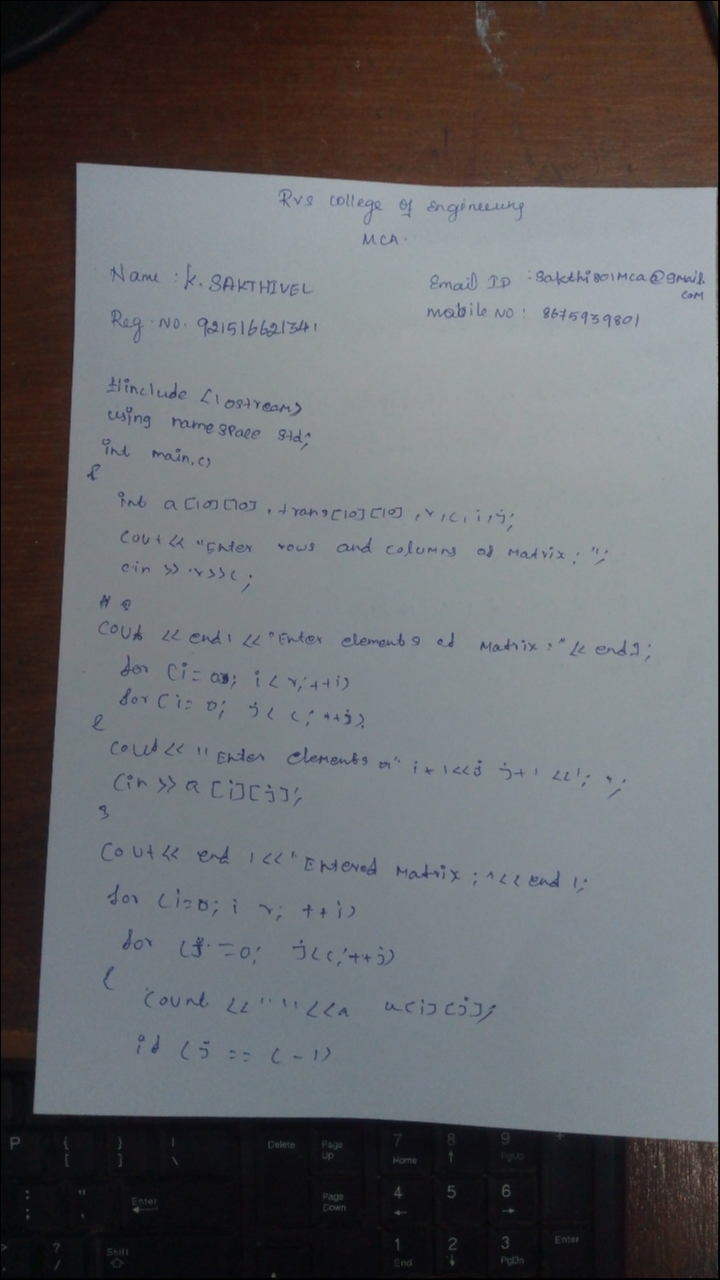 Rvs college of Engineering
MCA.
Name : K. SAKTHIVEL
Email ID : Sakthi801mca@gmail.com
Reg. No. 921516621341
mobile NO : 8675939801
#include <iostream>
using namespace std;
int main()
{
int a[10][10], trans[10][10], r, c, i, j;
cout << "Enter rows and columns of Matrix: ";
cin >> r >> c;
cout << endl << "Enter elements of Matrix:" << endl;
for (i = 0; i < r; ++i)
for (i = 0; j < c; ++j)
{
cout << "Enter elements a" i+1<<j j+1 <<': ";
cin >> a [i][j];
}
cout << end l << "Entered Matrix: "<< end l;
for (i=0; i r; ++i)
for (j =0; j<c; ++j)
{
Count << " " <<a a[i][j];
if (j == c -1)
P
{
[
}
]
|
\
Delete
Page Up
7 Home
8
9 PgUp
+
:
;
"
'
Enter
Page Down
4
5
6
>
?
/
Shift
1 End
2
3 PgDn
Enter